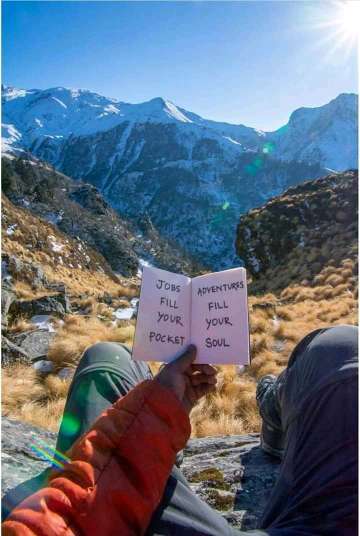 JOBS
FILL
YOUR
POCKET
ADVENTURES
FILL
YOUR
SOUL